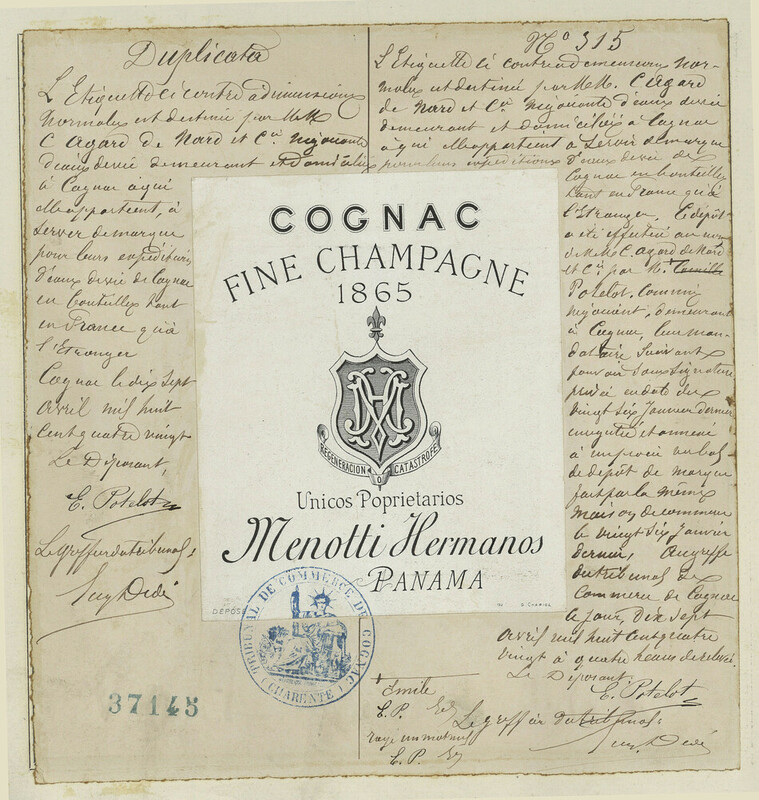 Duplicata
L'Etiquette ci contre a dimensions
normales est destinée par MM
C Agard de Nard et Cie négociants
d'eaux de vie demeurant et domiciliés
à Cognac à qui
elle appartient, à
servir de marque
pour leurs expéditions
d'eaux de vie de Cognac
en bouteilles tant
en France qu'à
l'Etranger
Cognac le dix sept
avril mil huit
cent quatre vingt
Le Déposant,
E. Potelot
Le greffier du tribunal
No 315
L'Etiquette ci contre a dimensions nor-
males est destinée par MM. C Agard
de Nard et Cie négociants d'eaux de vie
demeurant et domiciliés à Cognac
à qui elle appartient à servir de marque
pour leurs expéditions d'eaux de vie de
Cognac en bouteilles
tant en France qu'à
l'Etranger. Le dépôt
a été effectué au nom
de MM. C. Agard de Nard
et Cie par Mr Camille
Potelot, commis
négociant, demeurant
à Cognac, leur man-
dataire suivant
pouvoir sous signature
privée en date du
vingt six Janvier dernier
enregistré et annexé
à un procès verbal
de dépôt de marque
fait par la même
maison de commerce
le vingt six Janvier
dernier, au greffe
du tribunal de
Commerce de Cognac
ce jour, dix sept
avril mil huit cent quatre
vingt à quatre heures de relevée.
Le Déposant
E. Potelot
Le greffier du tribunal
+ Emile
E. P.
rayé un mot nul
E. P.
COGNAC
FINE CHAMPAGNE
1865
REGENERACION O CATASTROFE
Unicos Poprietarios
Menotti Hermanos
PANAMA
DÉPOSÉ
TRIBUNAL DE COMMERCE DE COGNAC
(CHARENTE)
37145